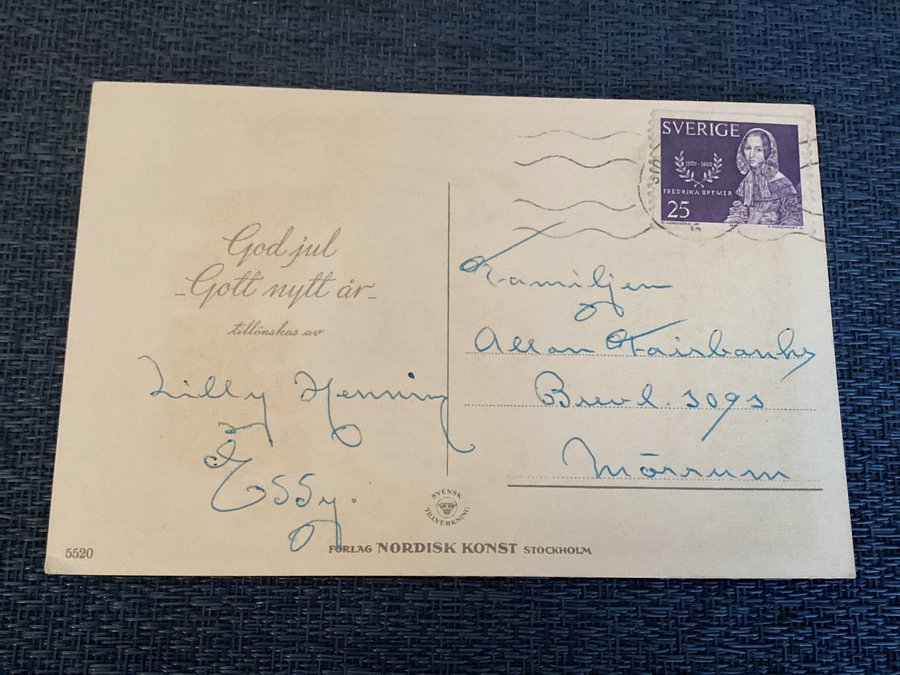 SVERIGE
1801-1865
FREDRIKA BREMER
25
God jul
Gott nytt år
tillönskas av
Lilly Henning
Essy.
Familjen
Allan Fairbanks
Brevl. 3093
Mörrum
SVENSK
TILLVERKNING
5520
FÖRLAG NORDISK KONST STOCKHOLM